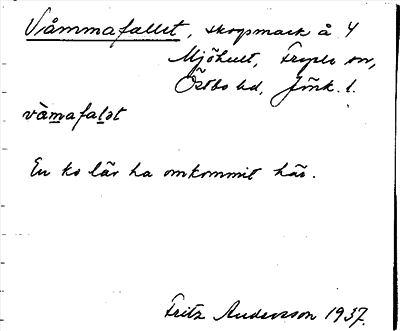 Våmmafallet, skogsmark å 4
Mjöhult, Fryele sn,
Östbo hd, Jönk. l.
våmafalət
En ko lär ha omkommit här.
Fritz Andersson 1937.